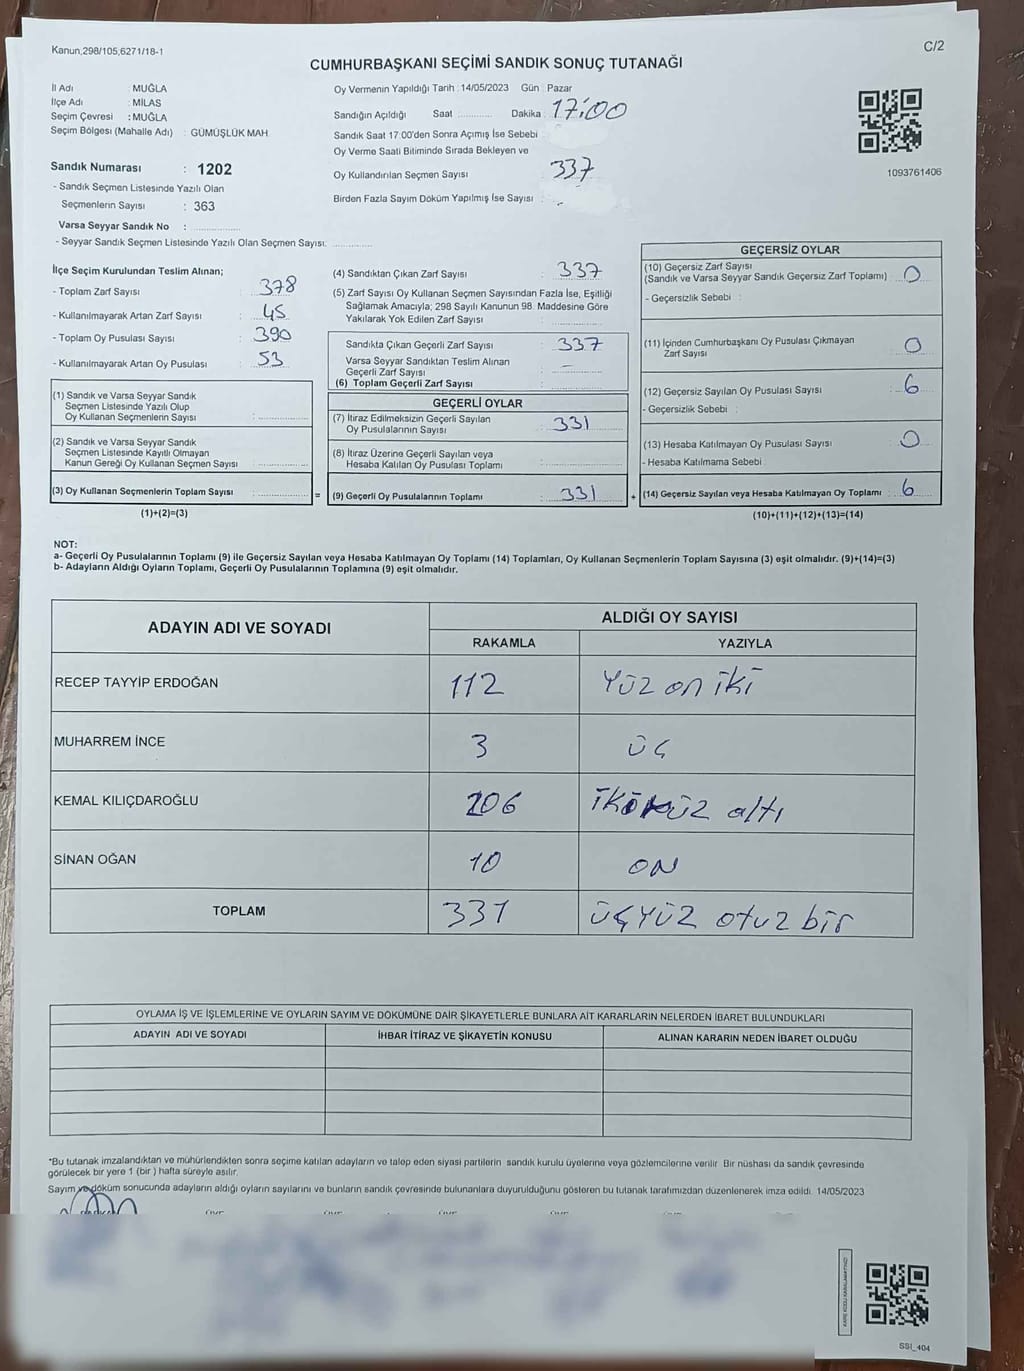 Kanun,298/105,6271/18-1
C/2
CUMHURBAŞKANI SEÇİMİ SANDIK SONUÇ TUTANAĞI
İl Adı : MUĞLA
İlçe Adı : MİLAS
Seçim Çevresi : MUĞLA
Seçim Bölgesi (Mahalle Adı) : GÜMÜŞLÜK MAH.
Oy Vermenin Yapıldığı Tarih : 14/05/2023 Gün : Pazar
Sandığın Açıldığı Saat ............ Dakika : 17:00
Sandık Saat 17:00'den Sonra Açımış İse Sebebi :
Oy Verme Saati Bitiminde Sırada Bekleyen ve
Oy Kullandırılan Seçmen Sayısı : 337
Birden Fazla Sayım Döküm Yapılmış İse Sayısı : -
1093761406
Sandık Numarası : 1202
- Sandık Seçmen Listesinde Yazılı Olan
Seçmenlerin Sayısı : 363
Varsa Seyyar Sandık No : ................
- Seyyar Sandık Seçmen Listesinde Yazılı Olan Seçmen Sayısı: .............
İlçe Seçim Kurulundan Teslim Alınan;
- Toplam Zarf Sayısı : 378
- Kullanılmayarak Artan Zarf Sayısı : 45
- Toplam Oy Pusulası Sayısı : 390
- Kullanılmayarak Artan Oy Pusulası : 53
(1) Sandık ve Varsa Seyyar Sandık
Seçmen Listesinde Yazılı Olup
Oy Kullanan Seçmenlerin Sayısı : ................
(2) Sandık ve Varsa Seyyar Sandık
Seçmen Listesinde Kayıtlı Olmayan
Kanun Gereği Oy Kullanan Seçmen Sayısı : ................
(3) Oy Kullanan Seçmenlerin Toplam Sayısı : ................
(1)+(2)=(3)
(4) Sandıktan Çıkan Zarf Sayısı : 337
(5) Zarf Sayısı Oy Kullanan Seçmen Sayısından Fazla İse, Eşitliği
Sağlamak Amacıyla; 298 Sayılı Kanunun 98. Maddesine Göre
Yakılarak Yok Edilen Zarf Sayısı : ................
Sandıkta Çıkan Geçerli Zarf Sayısı : 337
Varsa Seyyar Sandıktan Teslim Alınan
Geçerli Zarf Sayısı : -
(6) Toplam Geçerli Zarf Sayısı : ................
GEÇERLİ OYLAR
(7) İtiraz Edilmeksizin Geçerli Sayılan
Oy Pusulalarının Sayısı : 331
(8) İtiraz Üzerine Geçerli Sayılan veya
Hesaba Katılan Oy Pusulası Toplamı : ................
= (9) Geçerli Oy Pusulalarının Toplamı : 331
GEÇERSİZ OYLAR
(10) Geçersiz Zarf Sayısı
(Sandık ve Varsa Seyyar Sandık Geçersiz Zarf Toplamı) : 0
- Geçersizlik Sebebi :
(11) İçinden Cumhurbaşkanı Oy Pusulası Çıkmayan
Zarf Sayısı : 0
(12) Geçersiz Sayılan Oy Pusulası Sayısı : 6
- Geçersizlik Sebebi :
(13) Hesaba Katılmayan Oy Pusulası Sayısı : 0
- Hesaba Katılmama Sebebi :
+ (14) Geçersiz Sayılan veya Hesaba Katılmayan Oy Toplamı : 6
(10)+(11)+(12)+(13)=(14)
NOT:
a- Geçerli Oy Pusulalarının Toplamı (9) ile Geçersiz Sayılan veya Hesaba Katılmayan Oy Toplamı (14) Toplamları, Oy Kullanan Seçmenlerin Toplam Sayısına (3) eşit olmalıdır. (9)+(14)=(3)
b- Adayların Aldığı Oyların Toplamı, Geçerli Oy Pusulalarının Toplamına (9) eşit olmalıdır.
ADAYIN ADI VE SOYADI
ALDIĞI OY SAYISI
RAKAMLA YAZIYLA
RECEP TAYYİP ERDOĞAN 112 Yüz on iki
MUHARREM İNCE 3 üç
KEMAL KILIÇDAROĞLU 206 ikiyüz altı
SİNAN OĞAN 10 ON
TOPLAM 331 üçyüz otuz bir
OYLAMA İŞ VE İŞLEMLERİNE VE OYLARIN SAYIM VE DÖKÜMÜNE DAİR ŞİKAYETLERLE BUNLARA AİT KARARLARIN NELERDEN İBARET BULUNDUKLARI
ADAYIN ADI VE SOYADI İHBAR İTİRAZ VE ŞİKAYETİN KONUSU ALINAN KARARIN NEDEN İBARET OLDUĞU
*Bu tutanak imzalandıktan ve mühürlendikten sonra seçime katılan adayların ve talep eden siyasi partilerin sandık kurulu üyelerine veya gözlemcilerine verilir. Bir nüshası da sandık çevresinde
görülecek bir yere 1 (bir) hafta süreyle asılır.
Sayım ve döküm sonucunda adayların aldığı oyların sayılarını ve bunların sandık çevresinde bulunanlara duyurulduğunu gösteren bu tutanak tarafımızdan düzenlenerek imza edildi. 14/05/2023
SSI_404